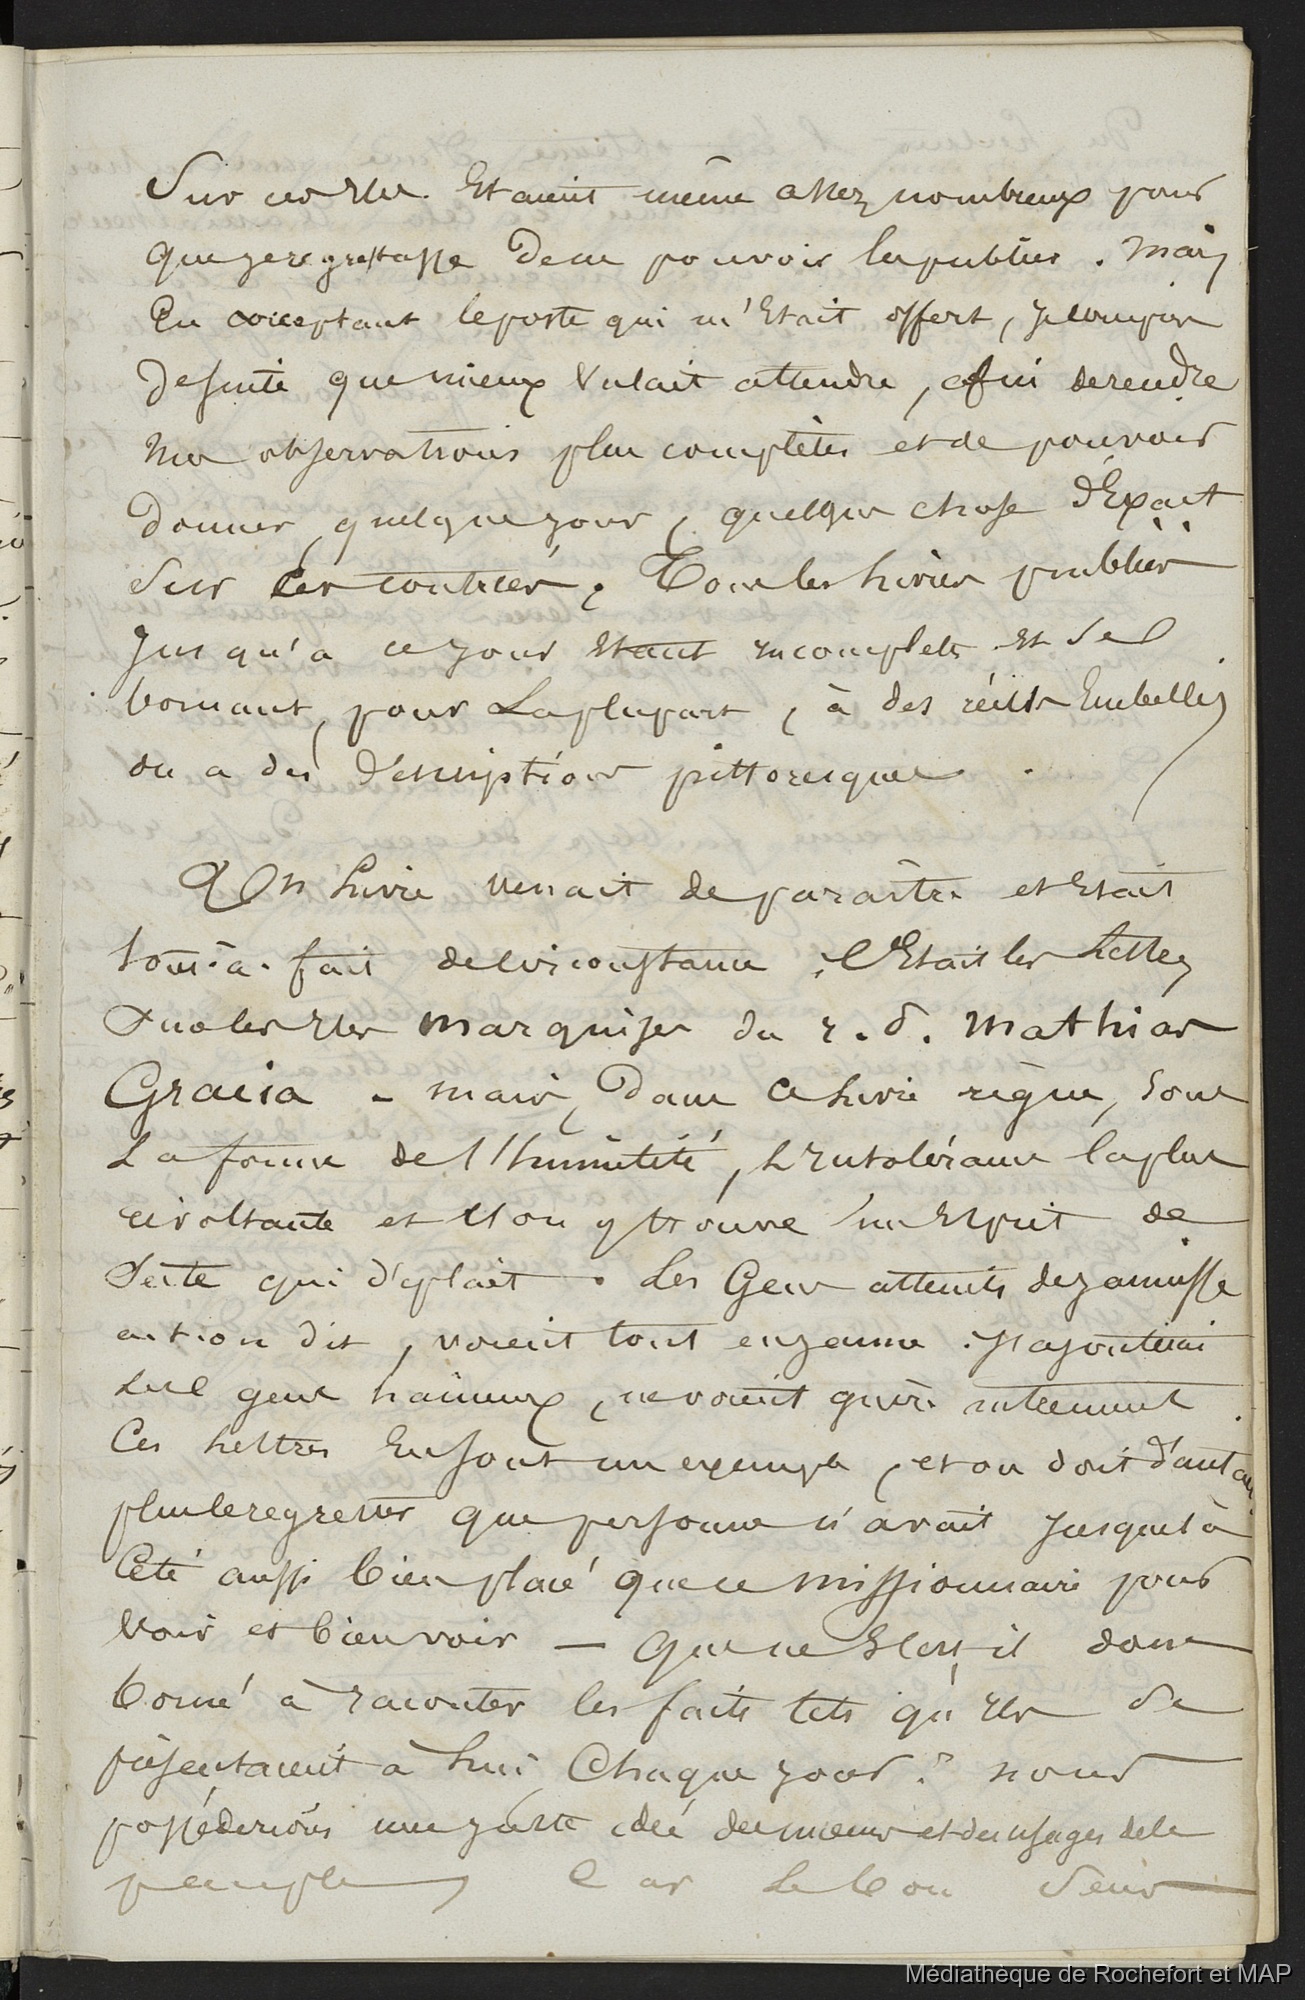 Sur ces Iles. Etaient même assez nombreux pour
que je regrettasse de ne pouvoir les publier. Mais
En acceptant le poste qui m'Etait offert, je compris
de suite que mieux Valait attendre, afin de rendre
mes observations plus complètes et de pouvoir
donner, quelque jour, quelque chose d'Exact
sur ces contrées. Tous les livres publiés
Jusqu'à ce jour Etant incomplets Et se
bornant, pour La plupart, à des récits Embellis
ou a des déscriptions pittoresques.
Un Livre venait de paraître et Etait
tout-à-fait de circonstance, C'Etait les Lettres
sur les Iles Marquises du r. d. Mathias
Gracia - mais, dans ce Livre règne, sous
La forme de l'humilité, L'Intolérance la plus
révoltante et l'on y trouve un Esprit de
secte qui déplait. Les Gens atteints de jaunisse
a-t-on dit, voient tout en jaune. J'ajouterai
que gens haineux, ne voient guère autrement.
Ces Lettres En sont un exemple, et on doit d'autant
plus le regretter que personne n'avait jusque là
été aussi bien placé que ce missionnaire pour
Voir et bien voir — Que ne s'Est-il donc
borné à raconter les faits tels qu'Ils se
présentaient à Lui Chaque jour? nous
posséderions une juste idée des moeurs et des usages de ce
peuple, Car Le bon Sens